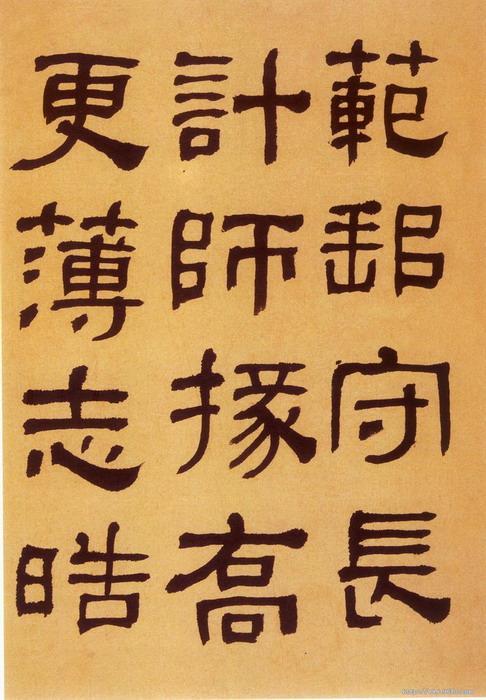 範郵守長
計師掾高
更薄志皓